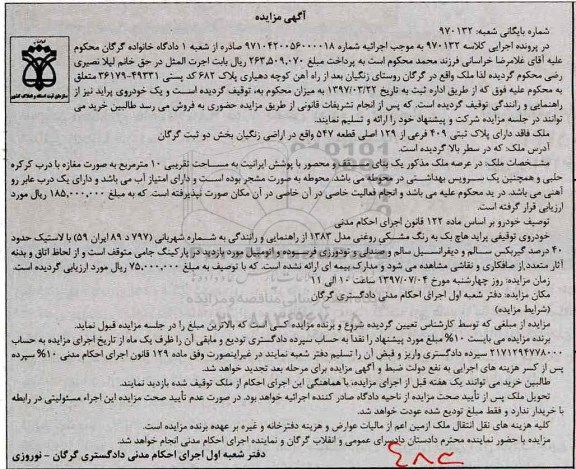 آگهی مزایده
شماره بایگانی شعبه: ۹۷۰۱۳۲
در پرونده اجرایی کلاسه ۹۷۰۱۳۲ به موجب اجرائیه شماره ۹۷۱۰۴۲۰۰۵۶۰۰۰۰۱۸ صادره از شعبه ۱ دادگاه خانواده گرگان محکوم
علیه آقای غلامرضا خراسانی فرزند محمد محکوم است به پرداخت مبلغ ۲۶۳,۵۰۹,۰۷۰ ریال بابت اجرت المثل در حق خانم لیلا نصیری
رضی محکوم گردیده لذا ملک واقع در گرگان روستای زنگیان بعد از راه آهن کوچه دهیاری پلاک ۶۸۲ کد پستی ۴۹۳۳۱-۳۶۱۷۹ متعلق
به محکوم علیه فوق که از طریق اداره ثبت به تاریخ ۱۳۹۷/۰۳/۲۲ به میزان محکوم به، توقیف گردیده است و یک خودروی پراید نیز از
راهنمایی و رانندگی توقیف گردیده است. که پس از انجام تشریفات قانونی از طریق مزایده حضوری به فروش می رسد طالبین خرید می
توانند در جلسه مزایده شرکت و پیشنهاد خود را ارائه و تسلیم نمایند.
ملک فاقد دارای پلاک ثبتی ۴۰۹ فرعی از ۱۲۹ اصلی قطعه ۵۴۷ واقع در اراضی زنگیان بخش دو ثبت گرگان
آدرس ملک: که در سطر بالا گردیده است.
مشخصات ملک: در عرصه ملک مذکور یک بنای مسقف و محصور با پوشش ایرانیت به مساحت تقریبی ۱۰ مترمربع به صورت مغازه با درب کرکره
حلبی و همچنین یک سرویس بهداشتی در محوطه می باشد. محوطه به صورت مشجر بوده است و دارای امتیاز آب می باشد و دارای یک درب عابر رو
آهنی می باشد. در ید محکوم علیه می باشد و انجام فعالیت خاصی در آن خاصی در آن مکان صورت نپذیرفته است. که به مبلغ ۱۸۵,۰۰۰,۰۰۰ ریال مورد
ارزیابی قرار گرفته است.
توصیف خودرو بر اساس ماده ۱۲۲ قانون اجرای احکام مدنی
خودروی توقیفی پراید هاچ بک به رنگ مشکی روغنی مدل ۱۳۸۳ از راهنمایی و رانندگی به شماره شهربانی (۷۹۷ د ۸۹ ایران ۵۹) با لاستیک حدود
۴۰ درصد گیربکس سالم و دیفرانسیل سالم و صندلی و تودوزی فرسوده و اتومبیل مورد بازدید در پارکینگ جامی متوقف است و از لحاظ اتاق و بدنه
آثار متعدد از صافکاری و نقاشی مشاهده می شود و مدارک بیمه ای ارائه نشده است. که با توصیف به مبلغ ۷۵,۰۰۰,۰۰۰ ریال مورد ارزیابی گردیده است.
زمان مزایده: روز چهارشنبه مورخ ۱۳۹۷/۰۷/۰۴ ساعت ۱۰ الی ۱۱
مکان مزایده: دفتر شعبه اول اجرای احکام مدنی دادگستری گرگان
(شرایط مزایده)
مزایده از مبلغی که توسط کارشناس تعیین گردیده شروع و برنده مزایده کسی است که بالاترین مبلغ را در جلسه مزایده قبول نماید.
برنده مزایده می بایست ۱۰% مبلغ مورد پیشنهاد را نقدا به حساب سپرده دادگستری تودیع و مابقی آن را ظرف یک ماه از تاریخ اجرای مزایده به حساب
۲۱۷۱۲۹۴۷۷۸۰۰۰ سپرده دادگستری واریز و قبض آن را تسلیم دفتر شعبه نمایند در غیراینصورت وفق ماده ۱۲۹ قانون اجرای احکام مدنی ۱۰% سپرده
پس از کسر هزینه های اجرایی به نفع دولت ضبط و آگهی مزایده برای مرحله بعد تجدید خواهد شد.
طالبین خرید می توانند یک هفته قبل از اجرای مزایده، با هماهنگی این اجرای احکام از ملک توقیف شده بازدید نمایند.
تحویل ملک پس از تأیید صحت مزایده از ناحیه دادگاه صادر کننده اجرائیه خواهد بود. در صورت عدم تأیید صحت مزایده این اجراء مسئولیتی در رابطه
با خریدار ندارد و فقط مبلغ تودیع شده عودت خواهد شد.
کلیه هزینه های نقل انتقال ملک ازمین اعم از مالیات عوارض و هزینه دفترخانه و غیره بر عهده برنده مزایده است.
مزایده با حضور نماینده محترم دادستان دادسرای عمومی و انقلاب گرگان و نماینده اجرای احکام مدنی انجام خواهد شد.
دفتر شعبه اول اجرای احکام مدنی دادگستری گرگان - نوروزی